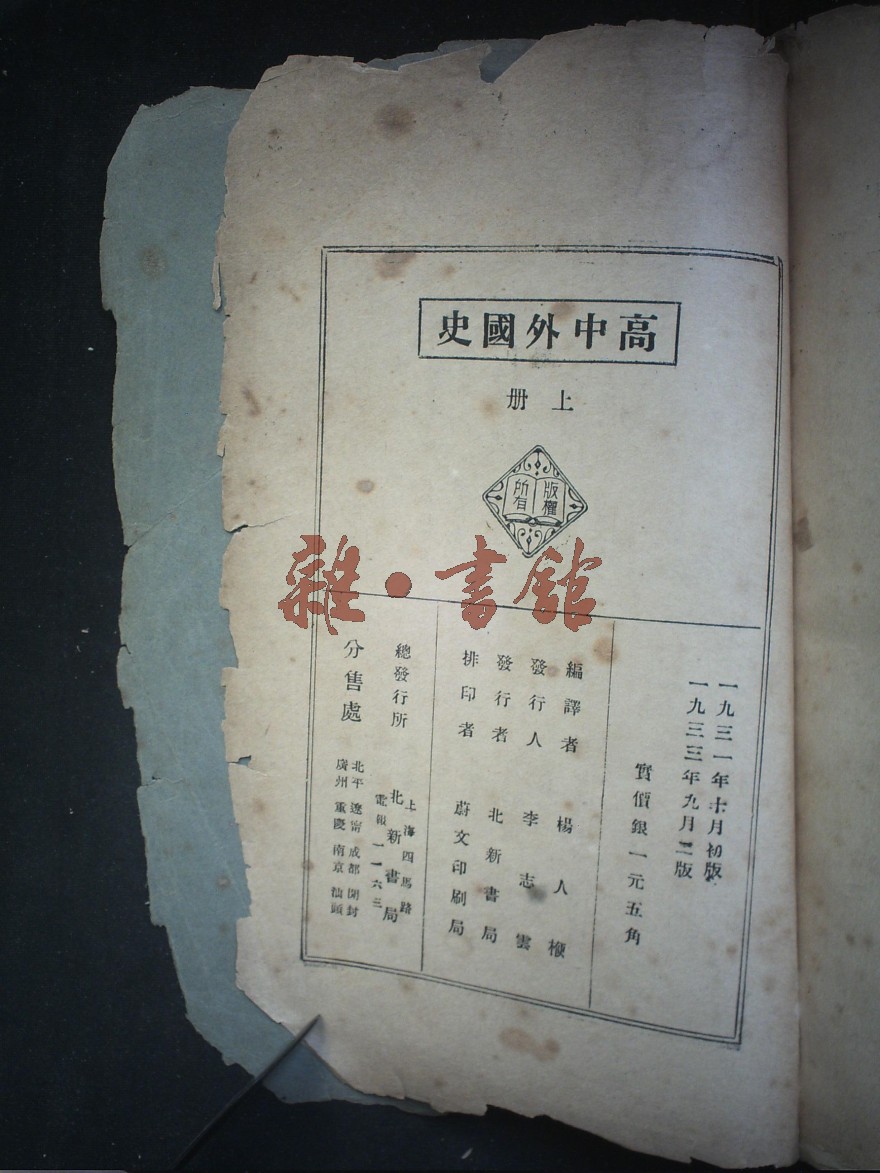 高中外國史
上册
版權
所有
雜•書館
一九三一年十月初版
一九三三年九月二版
實價銀一元五角
編譯者 楊人楩
發行人 李志雲
發行者 北新書局
排印者 蔚文印刷局
總發行所 上海四馬路
北新書局
電報一一六三
分售處 北平 遼甯 成都 開封
廣州 重慶 南京 汕頭